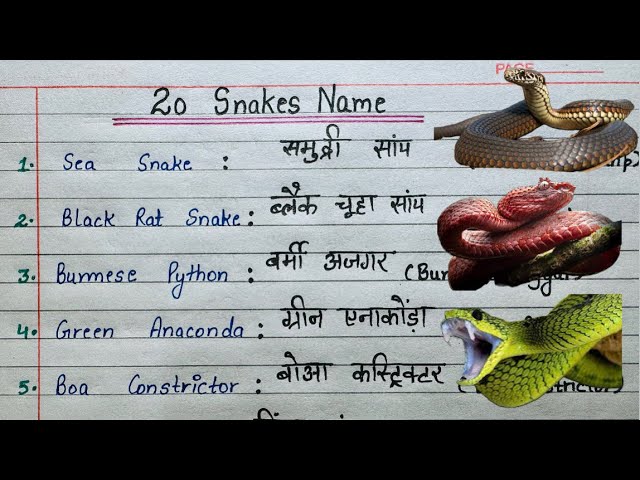 PAGE
20 Snakes Name
1. Sea Snake : समुद्री सांप
2. Black Rat Snake : ब्लैक चूहा सांप
3. Burmese Python : बर्मी अजगर (Bur
4. Green Anaconda : ग्रीन एनाकोंड़ा
5. Boa Constrictor : बोआ कस्ट्रिक्टर